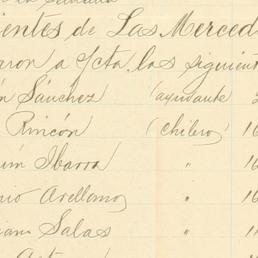 ientes de Las Merced
aron a Jcta. los siguient
n Sánchez (ayudante)
Rincón (chilero) 16
ím Ibarra " 16
io Arellano "
iam Salas " 1